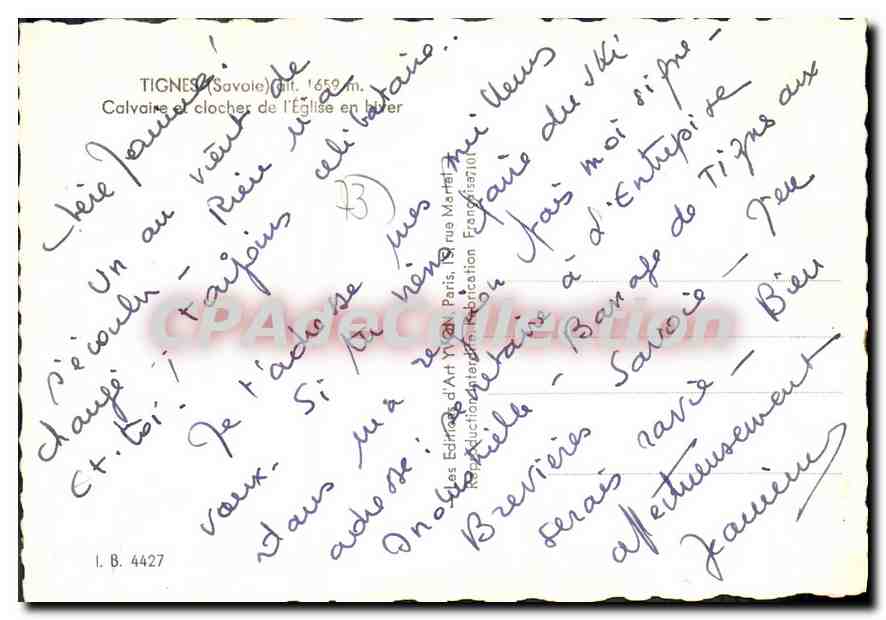 TIGNES (Savoie) alt. 1659 m.
Calvaire et clocher de l'Église en hiver
Chère Jeannine!
Un an vient de
s'écouler - Rien n'a
changé ! toujours célibataire..
Et. toi!
Je t'adresse mes meilleurs
vœux. Si tu viens faire du ski
dans ma région fais moi signe -
adresse: Secrétaire à l'Entreprise
Industrielle - Barrage de Tignes aux
Brevières Savoie - J'en
serais ravie - Bien
affectueusement
Jeannine
73
Les Editions d'Art YVON, Paris, 15, rue Martel
Reproduction Interdite. Fabrication Française 7101
I. B. 4427
CPAdeCollection